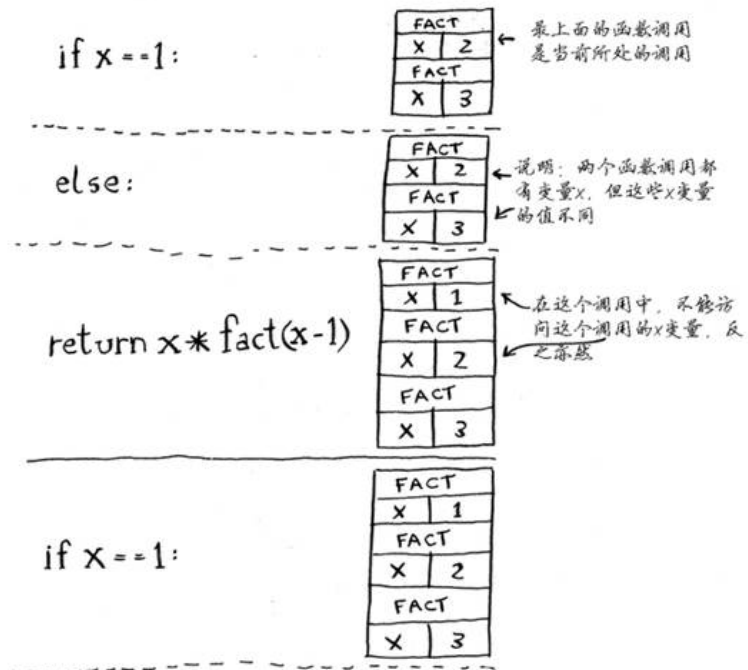 if x==1:
FACT
x 2
FACT
x 3
最上面的函数调用
是当前所处的调用
else:
FACT
x 2
FACT
x 3
说明：两个函数调用都
有变量x，但这些x变量
的值不同
return x * fact(x-1)
FACT
x 1
FACT
x 2
FACT
x 3
在这个调用中，不能访
问这个调用的x变量，反
之亦然
if x==1:
FACT
x 1
FACT
x 2
FACT
x 3